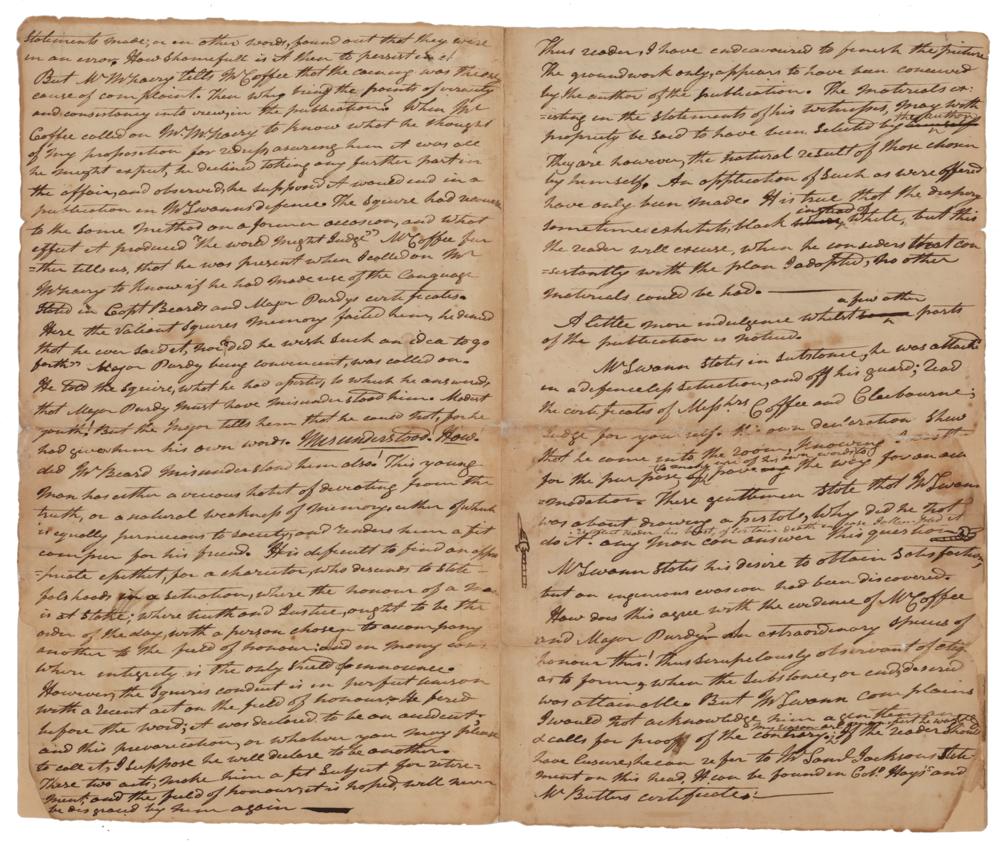 Statements made; or in other words, found out that they were
in an error. How shamefull is it then to persist in it
But Mr McNairy tells Mr Coffee that the caning was the
cause of complaint. Then why bring the points of veracity
and consistancy into view, in the publication. When Mr
Coffee called on Mr McNairy to know what he thought
of my proposition for redress, assuring him it was all
he might expect, he declined taking any further part in
the affair, and observed, he supposed it would end in a
publication in Mr Swanns defence. The Squire had recourse
to the same method on a former occasion, and what
effect it produced "the world might Judge" Mr Coffee fur
=ther tells us, that he was present when I called on Mr
McNairy to know if he had made use of the language
stated in Capt Beards and Major Purdys certificates.
Here the valiant Squires memory failed him, he denied
that he ever said it, nor did he wish such an idea to go
forth" Major Purdy being convenient, was called on.
He told the Squire, what he had asserted, to which he answered,
that Major Purdy must have misunderstood him. Modest
youth! But the Major tells him that he could not, for he
had given him his own words. Misunderstood. How
did Mr Beard misunderstand him also! This young
man has either a vicious habit of deviating from the
truth, or a natural weakness of memory, either of which
is equally pernicious to society, and renders him a fit
compeer for his friend. It is difficult to find an appro
=priate epithet, for a charector, who descends to state
falsehoods in a situation, where the honour of a man
is at stake; where truth and Justice, ought to be the
order of the day, with a person chosen to accompany
another to the field of honour: and in many cases
where integrity is the only shield to innocence.
However, the Squires conduct is in perfect unison
with a recent act on the field of honour. He fired
before the word; it was declared to be an accident,
and this prevarication, or whatever you may please
to call it, I suppose he will declare to be another.
These two acts, make him a fit subject for retire=
ment, and the field of honour, it is hoped, will never
be disgraced by him again
Thus reader, I have endeavoured to finish the picture
The groundwork only, appears to have been conceived
by the author of the publication. The materials ex=
=isting in the statements of his witnesses, may with
propriety be said to have been selected by the author
They are however, the natural result of those chosen
by himself. An application of such as were offered
have only been made. It is true that the drapery
sometimes exhibits, black instead of white, but this
the reader will excuse, when he considers that con
=sistantly with the plan I adopted, no other
materials could be had.
A little more indulgence whilst a few other parts
of the publication is noticed.
Mr Swann states in substance, he was attack'd
in a defenceless situation, and off his guard; read
the certificates of Messrs Coffee and Claibourne;
Judge for yourself. His own declaration shew
that he came into the room, knowing
for the purpose (to make use of his own words to) pave the way for an acco
=modation. These gentlemen state that Mr Swann
was about drawing a pistol, Why did he not
do it. Any man can answer this question
Mr Swann states his desire to obtain satisfaction,
but an ingenious evasion had been discovered.
How does this agree with the evidence of Mr Coffee
and Major Purdy? An extraordinary species of
honour this! thus scrupelously observant of
as to form, when the substance, or end desired
was attainable. But Mr Swann complains
I would not acknowledge him a gentleman
& calls for proof of the contrary. If the reader should
have leisure, he can refer to Mr Saml Jacksons state
ment on this head, It can be found in Colo Hays and
Mr Butlers certificates: